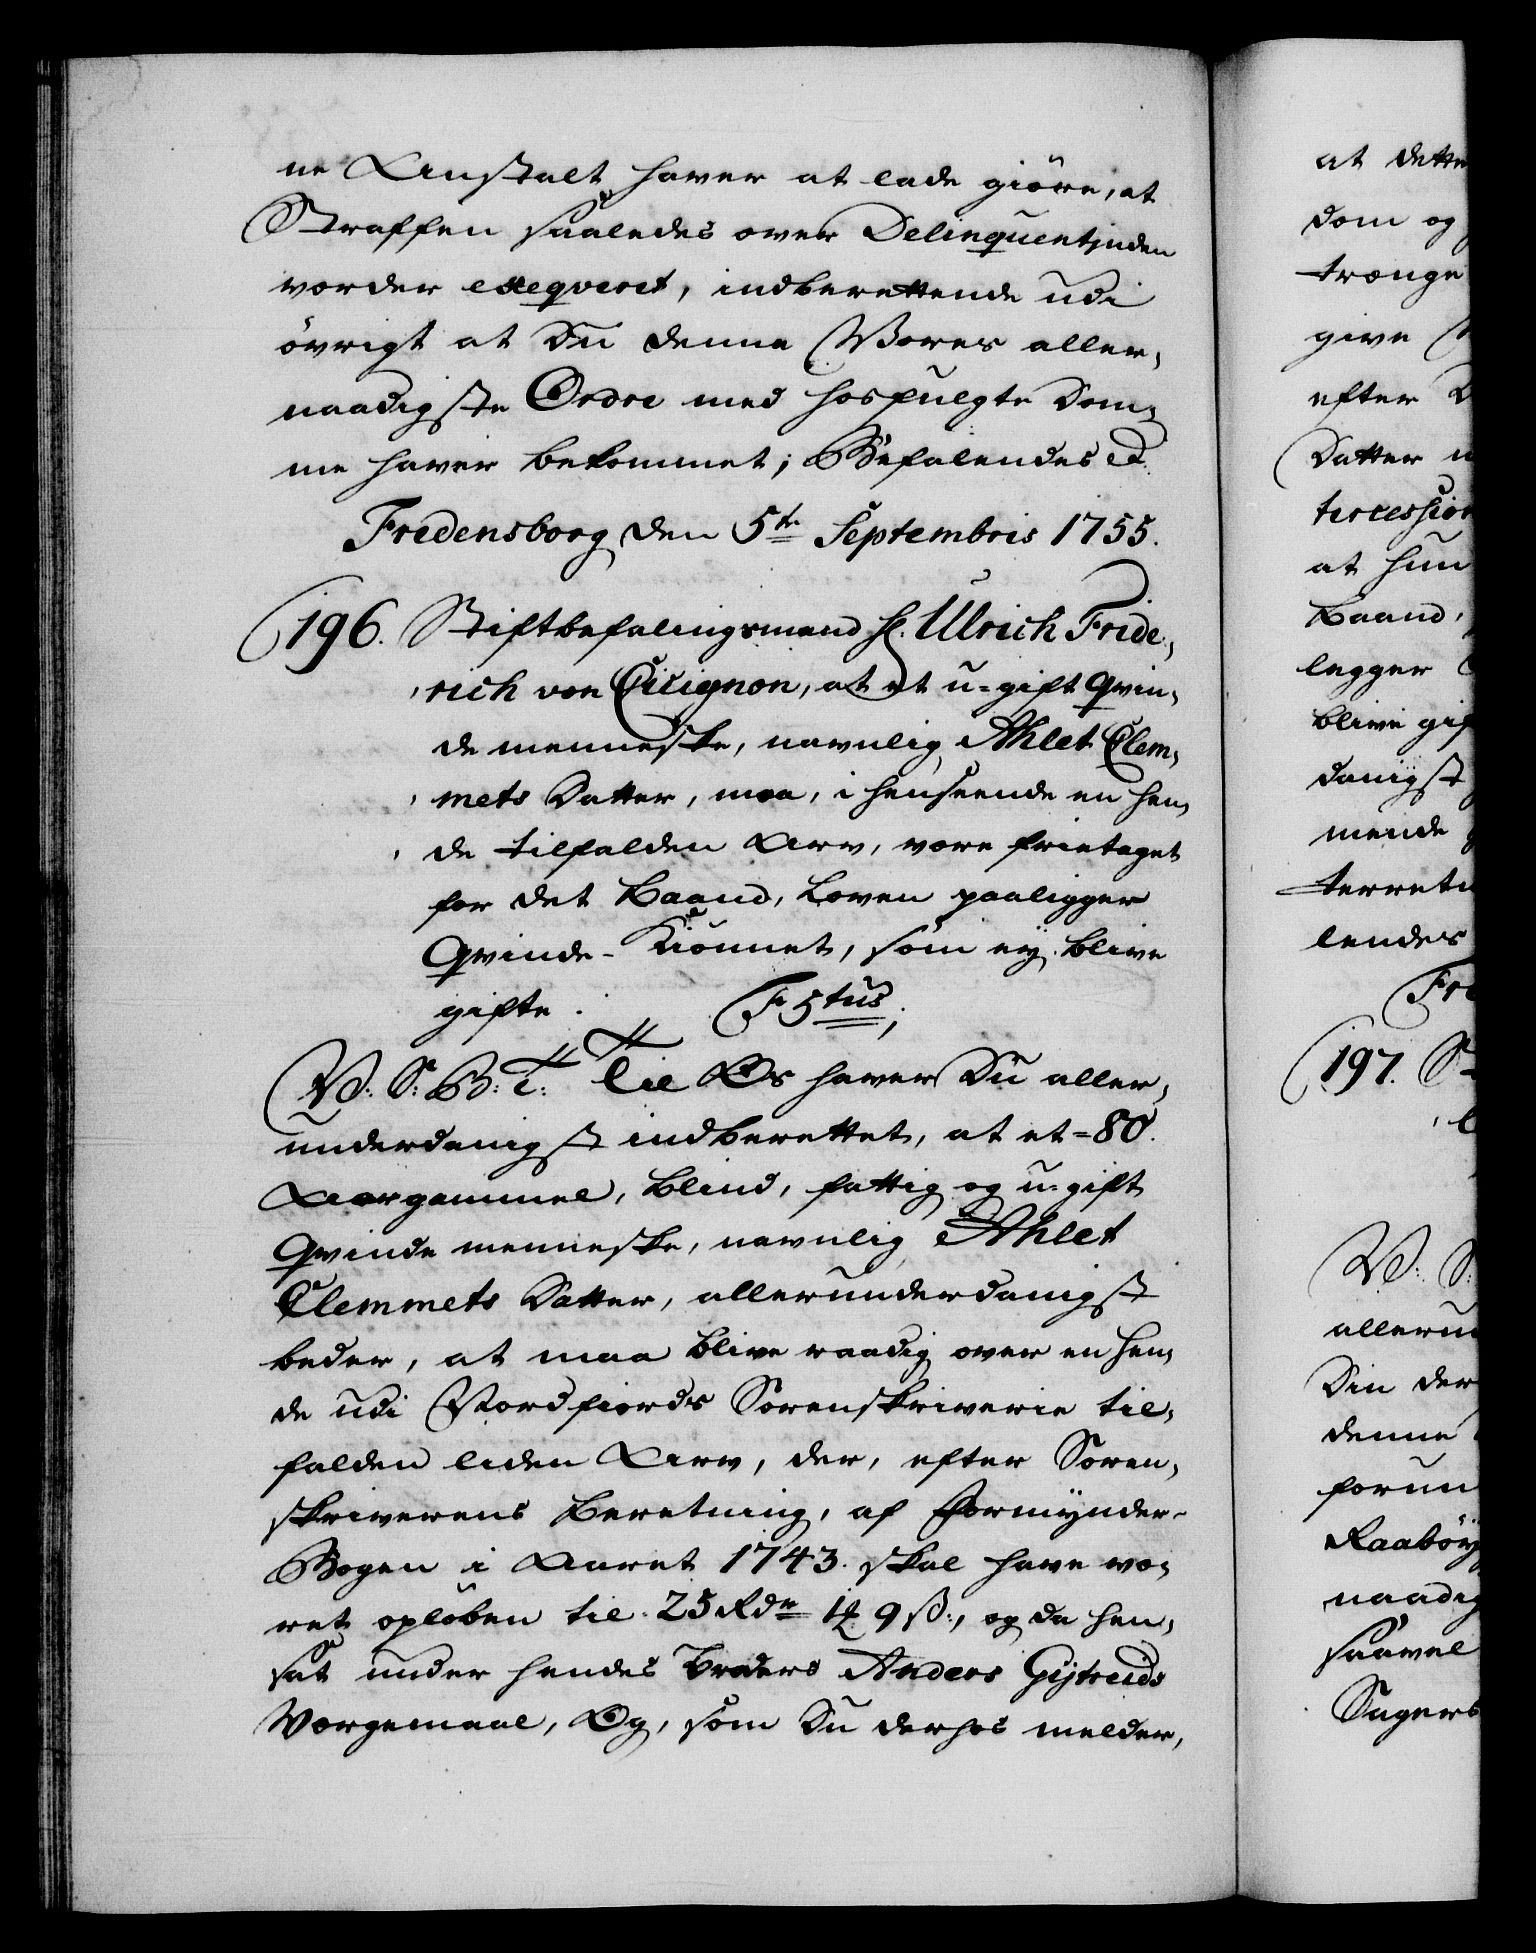 ne Anstalt haver at lade giöre, at
Straffen saaledes over Delinquentinden
vorder exeqveret, indberettende udi
övrigt at Du denne Vores aller-
naadigste Ordre med hosfulgte Dom-
me haver bekommet; Befalendes &
Fredensborg den 5te Septembris 1755.
196. Stiftbefalingsmand Hr. Ulrich Fride-
rich von Cicignon, at et u-gift Qvin-
de menneske, navnlig Ahlet Clem-
mets Datter, maa, i henseende en hen-
de tilfalden Arv, være frietaget
for det Baand, Loven paaligger
Qvinde-Kiönnet, som ej blive
gifte. F 5tus;
V: S: G: T: Til Os haver Du aller-
underdanigst indberettet, at et 80.
Aargammel, blind, fattig og u-gift
Qvinde menneske, navnlig Ahlet
Clemmets Datter, allerunderdanigst
beder, at maa blive raadig over en hen-
de udi Nordfiords Sorenskriverie til-
falden liden Arv, der, efter Soren-
skriverens Beretning, af Formynder-
Bogen i Aaret 1743. skal have væ-
ret oplöben til 25 Rdr 1 9 ß:, og da hen-
sat under hendes Broders Anders Gÿtreids
Værgemaal, Og, som Du derhos melder,
at dette
dom og
trænge
give
efter
Datter
tercession
at hun
Baand,
legger
blive gif
danigst
mende
terrete
lendes
Fre
197. S
V: S:
allerun
Din der
denne
forun
Raaböy
naadig
saavel
Sagers